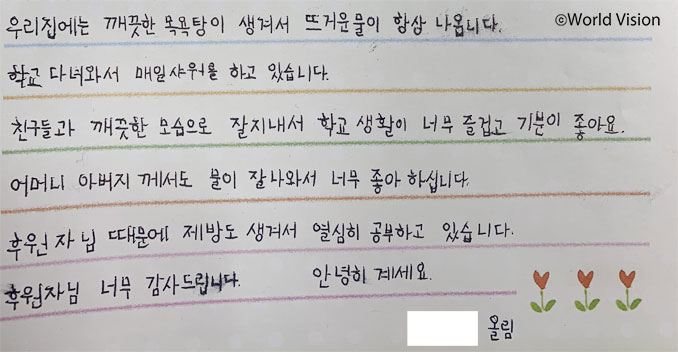 ©World Vision
우리집에는 깨끗한 목욕탕이 생겨서 뜨거운물이 항상 나옵니다.
학교 다녀와서 매일샤워를 하고 있습니다.
친구들과 깨끗한 모습으로 잘지내서 학교 생활이 너무 즐겁고 기분이 좋아요.
어머니 아버지 께서도 물이 잘나와서 너무 좋아 하십니다.
후원자님 때문에 제방도 생겨서 열심히 공부하고 있습니다.
후원자님 너무 감사드립니다. 안녕히 계세요.
올림